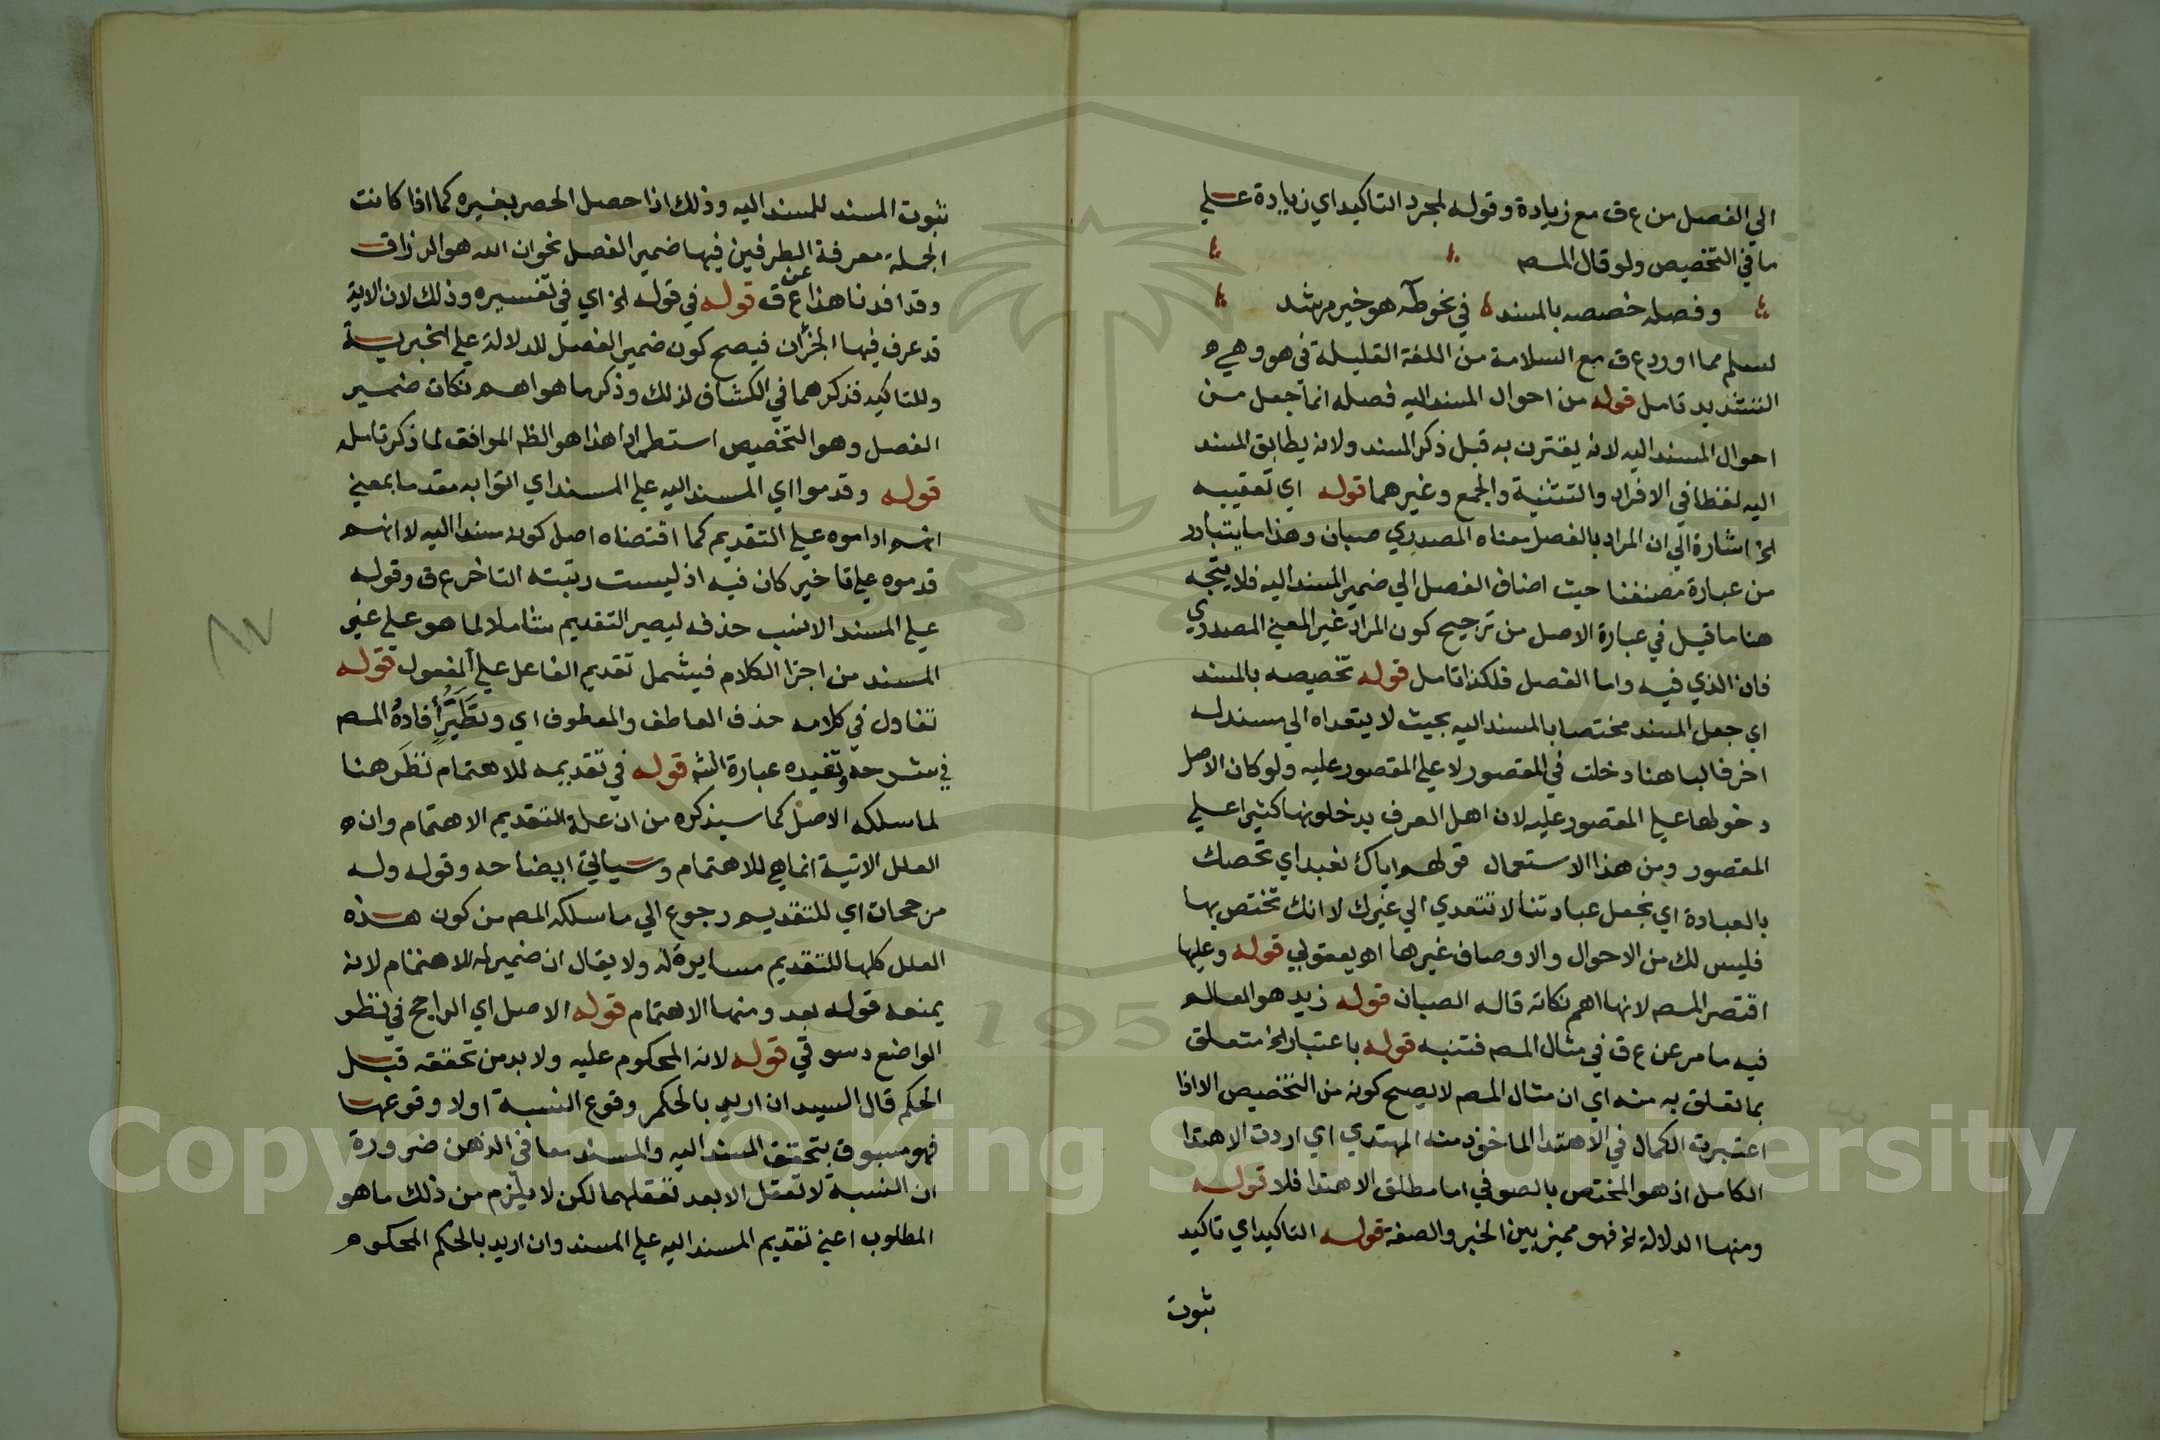 الي الفصل من ع ق مع زيادة وقوله لمجرد التاكيد اي زيادة علي
ما في التخصيص ولو قال المصه
وفصله خصصه بالمسند في نحو طه هو خير مرشد
لسلم مما اورد ع ق مع السلامة من اللغة القليلة في هو وهي ه
التشديد تامل قوله من احوال المسند اليه فصله انما جعل من
احوال المسند اليه لانه يقترن به قبل ذكر المسند ولانه يطابق المسند
اليه لفظا في الافراد والتثنية والجمع وغيرهما قوله اي تعقيبه
الخ اشارة الي ان المراد بالفصل معناه المصدري صبان وهذا ما يتبادر
من عبارة مصنفنا حيث اضاف الفصل الي ضمير المسند اليه فلا يتجه
هنا ما قيل في عبارة الاصل من ترجيح كون المراد غير المعني المصدري
فان الذي فيه واما الفصل فلكذا تامل قوله تخصيصه بالمسند
اي جعل المسند مختصا بالمسند اليه بحيث لا يتعداه الي مسند له
اخر فالبا هنا دخلت في المقصور لا علي المقصور عليه ولو كان الاصل
دخولها علي المقصور عليه لان اهل العرف يدخلونها كثيرا علي
المقصور ومن هذا الاستعمال قولهم اياك نعبد اي نخصك
بالعبادة اي نجعل عبادتنا لا تتعدي الي غيرك لا انك تختص بها
فليس لك من الاحوال والاوصاف غيرها اه يعقوبي قوله وعليها
اقتصر المصه لانها اهم نكاته قاله الصبان قوله زيد هو العالم
فيه ما مر عن ع ق في مثال المصه فتنبه قوله باعتبار الخ متعلق
بما تعلق به منه اي ان مثال المصه لا يصح كونه من التخصيص الا اذا
اعتبرت الكمال في الاهتدا الماخوذ منه المهتدي اي اردت الاهتدا
الكامل اذ هو المختص بالصوفي اما مطلق الاهتدا فلا قوله
ومنها الدلالة الخ فهو مميز بين الخبر والصفة قوله التاكيد اي تاكيد
ثبوت
ثبوت المسند للمسند اليه وذلك اذا حصل الحصر بغيره كما اذا كانت
الجملة معرفة الطرفين فيها ضمير الفصل نحو ان الله هو الرزاق
وقد افدنا هذا عن ع ق قوله في قوله الخ اي في تفسيره وذلك لان الاية
قد عرف فيها الجزان فيصح كون ضمير الفصل للدلالة علي الخبرية
وللتاكيد فذكرهما في الكشاف لذلك وذكر ما هو اهم نكات ضمير
الفصل وهو التخصيص استطرادا هذا هو الظه الموافق لما ذكر تامله
قوله وقدموا اي المسند اليه علي المسند اي اتوا به مقدما بمعني
انهم اداموه علي التقديم كما اقتضاه اصل كونه مسندا اليه لا انهم
قدموه علي تاخير كان فيه اذ ليست رتبته التاخر ع ق وقوله
علي المسند الانسب حذفه ليصير التقديم شاملا لما هو علي غير
المسند من اجزا الكلام فيشمل تقديم الفاعل علي المفعول قوله
تفاول في كلامه حذف العاطف والمعطوف اي وتطير افاده المصه
في شرحه وتفيده عبارة الشه قوله في تقديمه للاهتمام نظر هنا
لما سلكه الاصل كما سيذكره من ان علة التقديم الاهتمام وان ه
العلل الاتية انما هي للاهتمام وسياتي ايضاحه وقوله وله
مرجحات اي للتقديم رجوع الي ما سلكه المصه من كون هذه
العلل كلها للتقديم مسايرة له ولا يقال ان ضمير له للاهتمام لانه
يمنعه قوله بعد ومنها الاهتمام قوله الاصل اي الراجح في نظر
الواضع دسوقي قوله لانه المحكوم عليه ولا بد من تحققه قبل
الحكم قال السيد ان اريد بالحكم وقوع النسبة او لا وقوعها
فهو مسبوق بتحقق المسند اليه والمسند معا في الذهن ضرورة
ان النسبة لا تعقل الا بعد تعقلهما لكن لا يلزم من ذلك ما هو
المطلوب اعني تقديم المسند اليه علي المسند وان اريد بالحكم المحكوم
Copyright © King Saud University
195